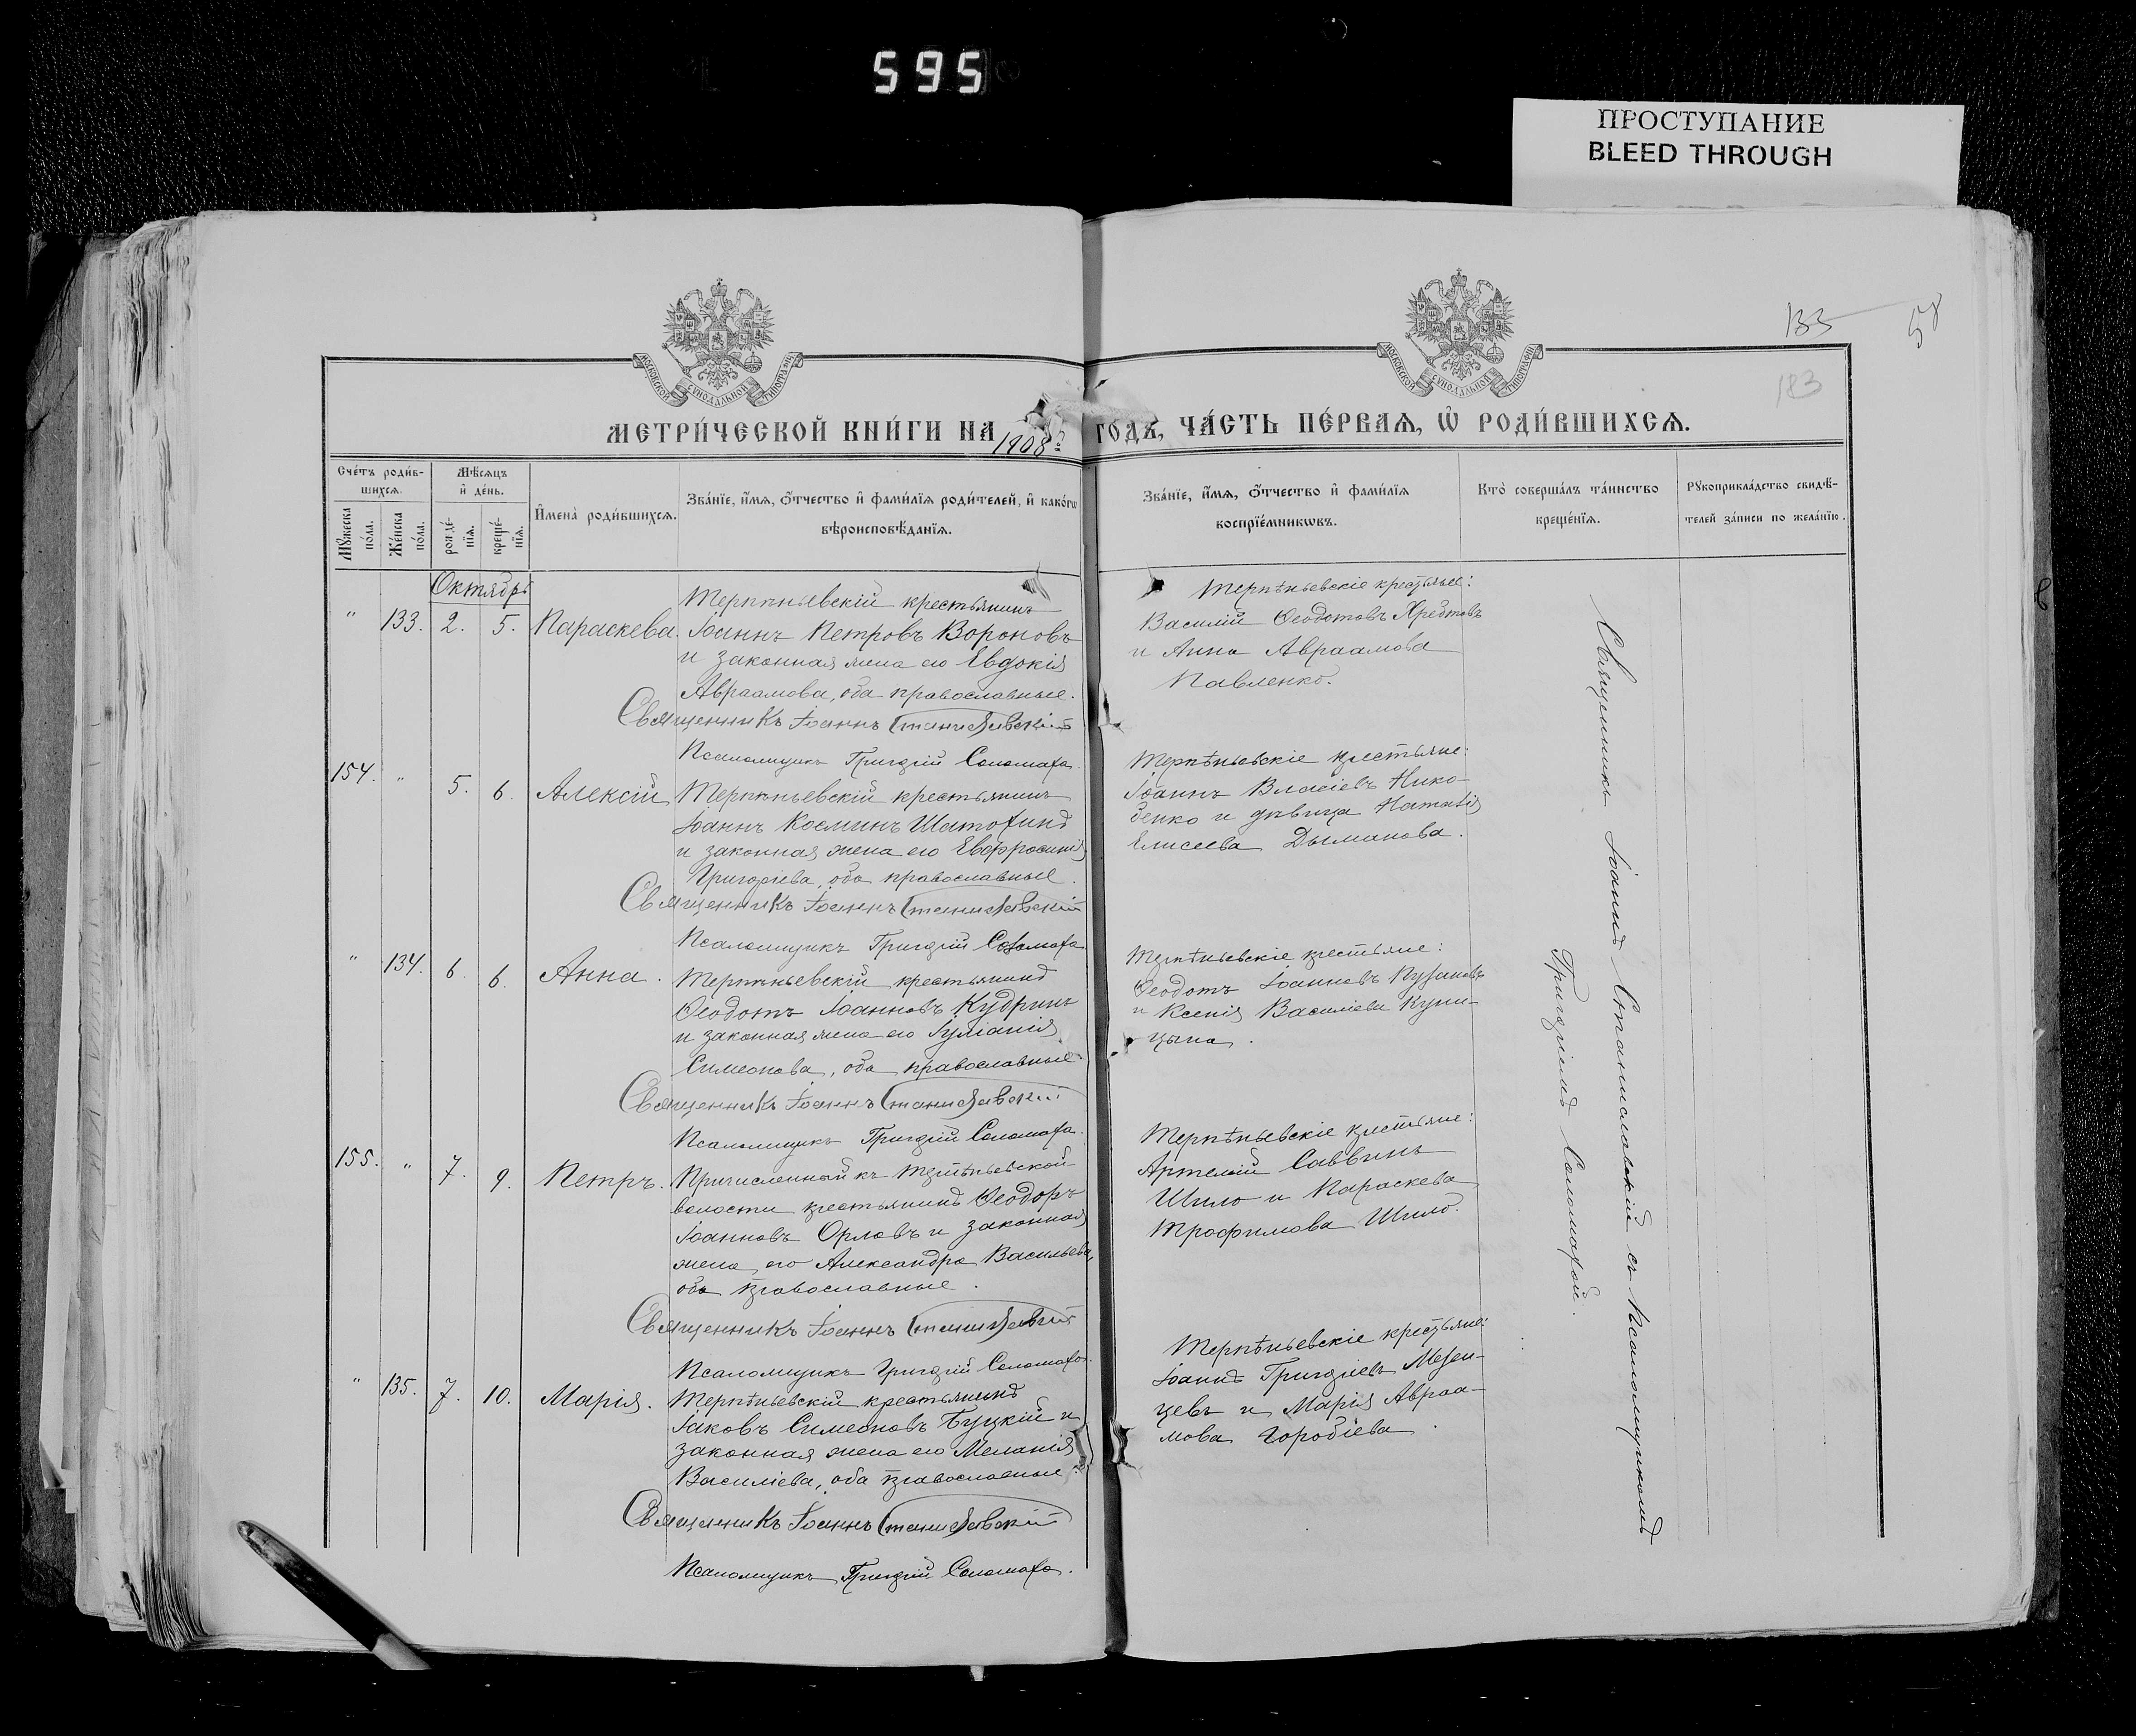 595
ПРОСТУПАНИЕ
BLEED THROUGH
133
58
183
МОСКОВСКОЙ СѴНОДАЛЬНОЙ ТИПОГРАФІИ
МОСКОВСКОЙ СѴНОДАЛЬНОЙ ТИПОГРАФІИ
МЕТРИ́ЧЕСКОЙ КНИ́ГИ НА 1908 ГОДЪ, ЧА́СТЬ ПЕ́РВАѦ, Ѡ҆ РОДИ́ВШИХСѦ.
Сче́тъ роди́в-
шихсѧ.
Мꙋ́жеска по́ла.
Же́нска по́ла.
Мѣ́сѧцъ
и҆ де́нь.
рожде́-
нїѧ.
креще́-
нїѧ.
И҆мена̀ роди́вшихсѧ.
Зва́нїе, и҆́мѧ, ѻ҆́тчество и҆ фами́лїѧ роди́телей, и҆ како́гѡ
вѣроисповѣ́данїѧ.
Зва́нїе, и҆́мѧ, ѻ҆́тчество и҆ фами́лїѧ
воспрїе́мникѡвъ.
Кто̀ соверша́лъ та́инство
креще́нїѧ.
Рꙋкоприкла́дство свидѣ́-
телей за́писи по жела́нїю.
Октябрь
" 133. 2. 5. Параскева.
Терпѣньевскій крестьянинъ
Іоаннъ Петровъ Вороновъ
и законная жена его Евдокія
Авраамова, оба православные.
Священникъ Іоаннъ Станиславскій
Псаломщикъ Григорій Соломаха.
Терпѣньевскіе крестьяне:
Василій Ѳеодотовъ
и Анна Авраамова
Павленко.
154. " 5. 6. Алексій
Терпѣньевскій крестьянинъ
Іоаннъ Косминъ Шатохинъ
и законная жена его Евфросинія
Григоріева, оба православные.
Священникъ Іоаннъ Станиславскій
Псаломщикъ Григорій Соломаха
Терпѣньевскіе крестьяне:
Іоаннъ Власіевъ Нико-
денко и дѣвица Наталія
Елисеева Дыманова.
" 134. 6. 6. Анна.
Терпѣньевскій крестьянинъ
Ѳеодотъ Іоанновъ Кудринъ
и законная жена его Іуліанія
Симеонова, оба православные
Священникъ Іоаннъ Станиславскій
Псаломщикъ Григорій Соломаха.
Терпѣньевскіе крестьяне:
Ѳеодотъ Іоанновъ Пузановъ
и Ксенія Василіева Купи-
цына.
155. " 7. 9. Петръ.
Причисленный къ Терпѣньевской
волости крестьянинъ Ѳеодоръ
Іоанновъ Орловъ и законная
жена его Александра Васильева,
оба православные.
Священникъ Іоаннъ Станиславскій
Псаломщикъ Григорій Соломаха.
Терпѣньевскіе крестьяне:
Артемій Саввинъ
Шило и Параскева
Трофимова Шило.
" 135. 7. 10. Марія.
Терпѣньевскій крестьянинъ
Іаковъ Симеоновъ Буцкій и
законная жена его Меланія
Василіева, оба православные
Священникъ Іоаннъ Станиславскій
Псаломщикъ Григорій Соломаха.
Терпѣньевскіе крестьяне:
Іоаннъ Григоріевъ Мезен-
цевъ и Марія Авраа-
мова Горобіева.
Священникъ Іоаннъ Станиславскій съ псаломщикомъ
Григоріемъ Соломахой.